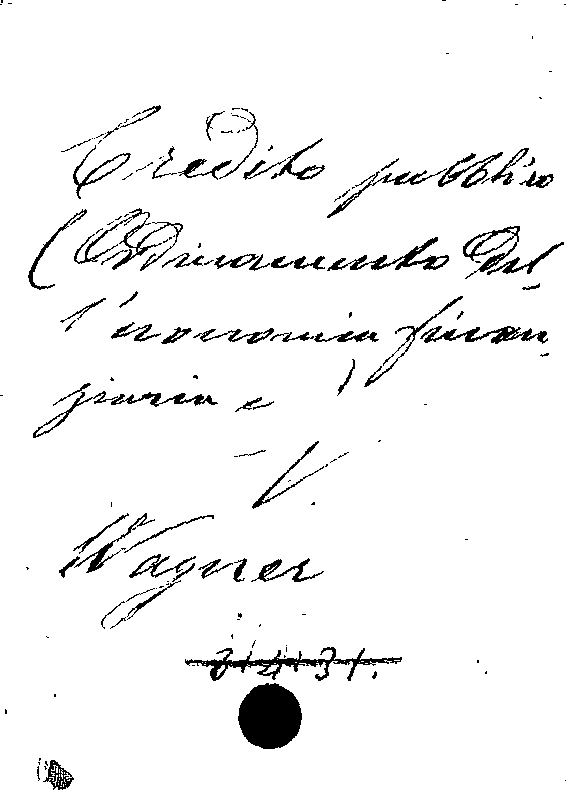 Credito pubblico
(Ordinamento del-
l'economia finan-
ziaria e )
- V.
Wagner
314131.